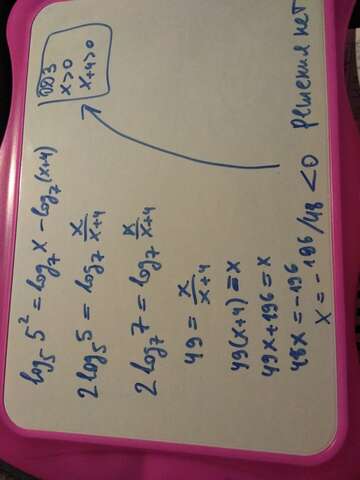 log₅ 5² = log₇ x - log₇ (x+4)
2 log₅ 5 = log₇ x/(x+4)
2 log₇ 7 = log₇ x/(x+4)
49 = x/(x+4)
49(x+4) = x
49x+196 = x
48x = -196
x = -196/48 < 0 решения нет
ОДЗ
x>0
x+4>0